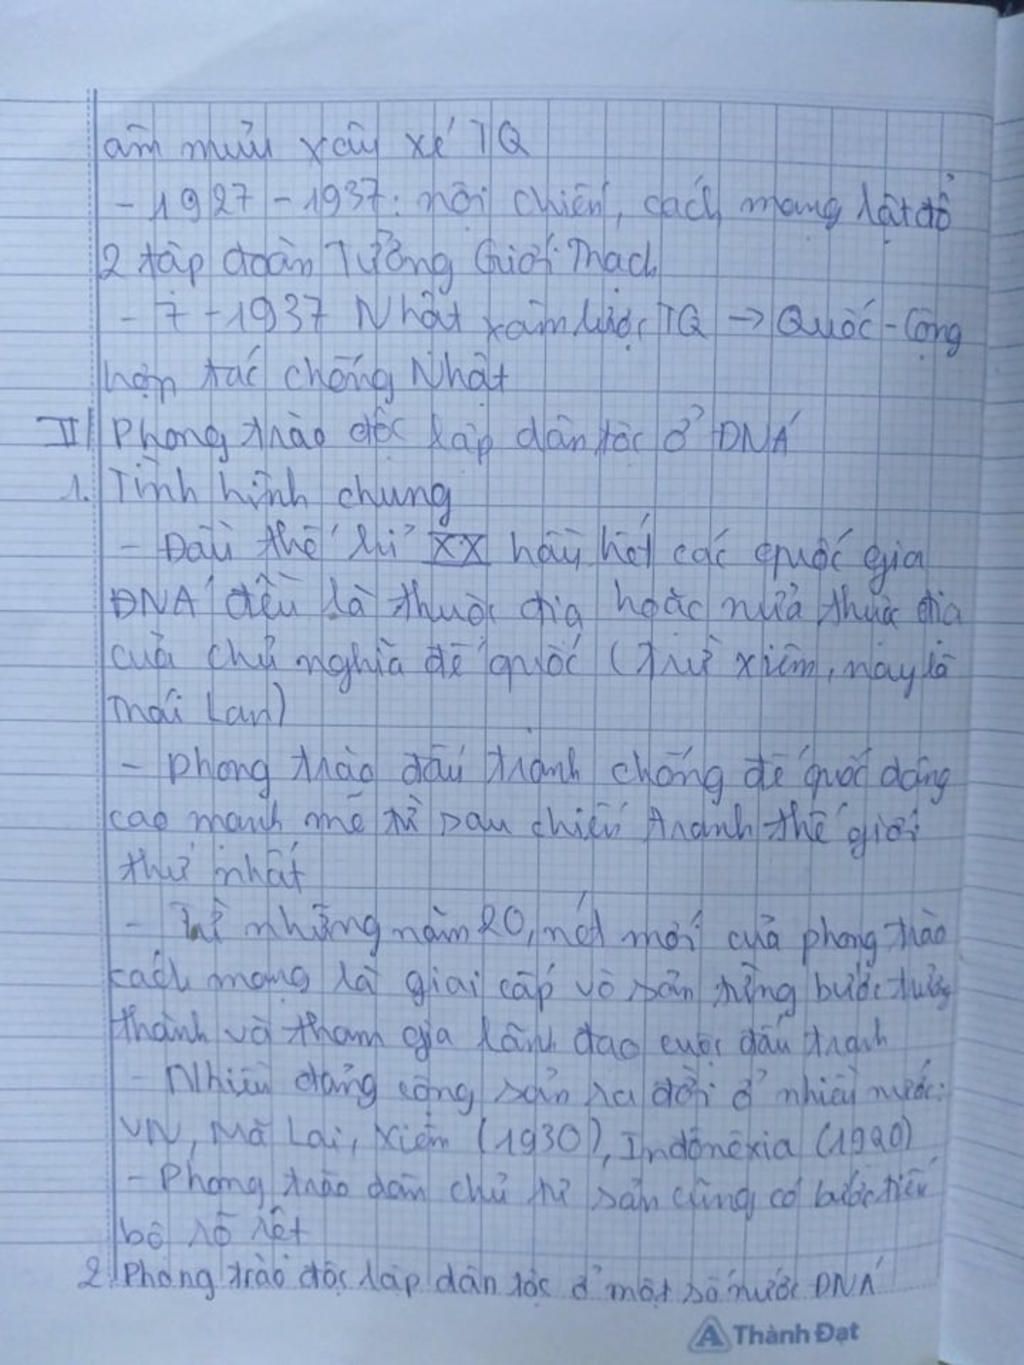 âm mưu xâu xé TQ
- 1927 - 1937: nội chiến, cách mạng lật đổ
2 tập đoàn Tưởng Giới Thạch
- 7 - 1937 Nhật xâm lược TQ → Quốc - Cộng
hợp tác chống Nhật
II Phong trào độc lập dân tộc ở ĐNÁ
1. Tình hình chung
- Đầu thế kỉ XX hầu hết các quốc gia
ĐNÁ đều là thuộc địa hoặc nửa thuộc địa
của chủ nghĩa đế quốc (trừ Xiêm, nay là
Thái Lan)
- Phong trào đấu tranh chống đế quốc dâng
cao mạnh mẽ từ sau chiến tranh thế giới
thứ nhất
- Từ những năm 20, nét mới của phong trào
cách mạng là giai cấp vô sản từng bước trưởng
thành và tham gia lãnh đạo cuộc đấu tranh
- Nhiều đảng cộng sản ra đời ở nhiều nước:
VN, Mã Lai, Xiêm (1930), Inđônêxia (1920)
- Phong trào dân chủ tư sản cũng có bước tiến
bộ rõ rệt
2. Phong trào độc lập dân tộc ở một số nước ĐNÁ
Thành Đạt